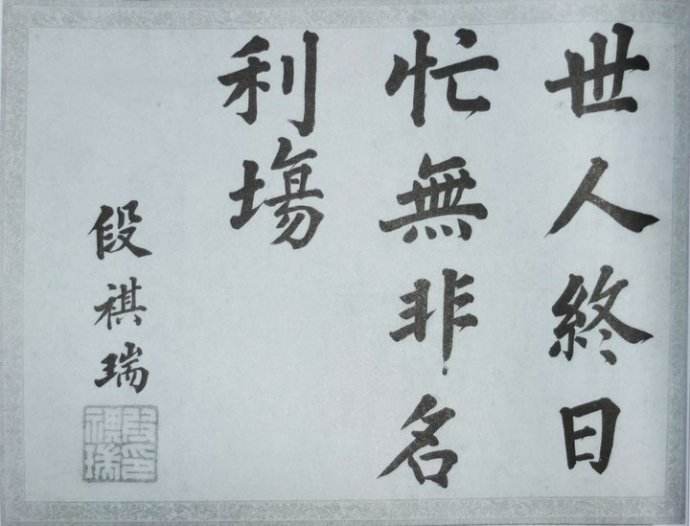 世人終日
忙無非名
利場
段祺瑞
段祺瑞印